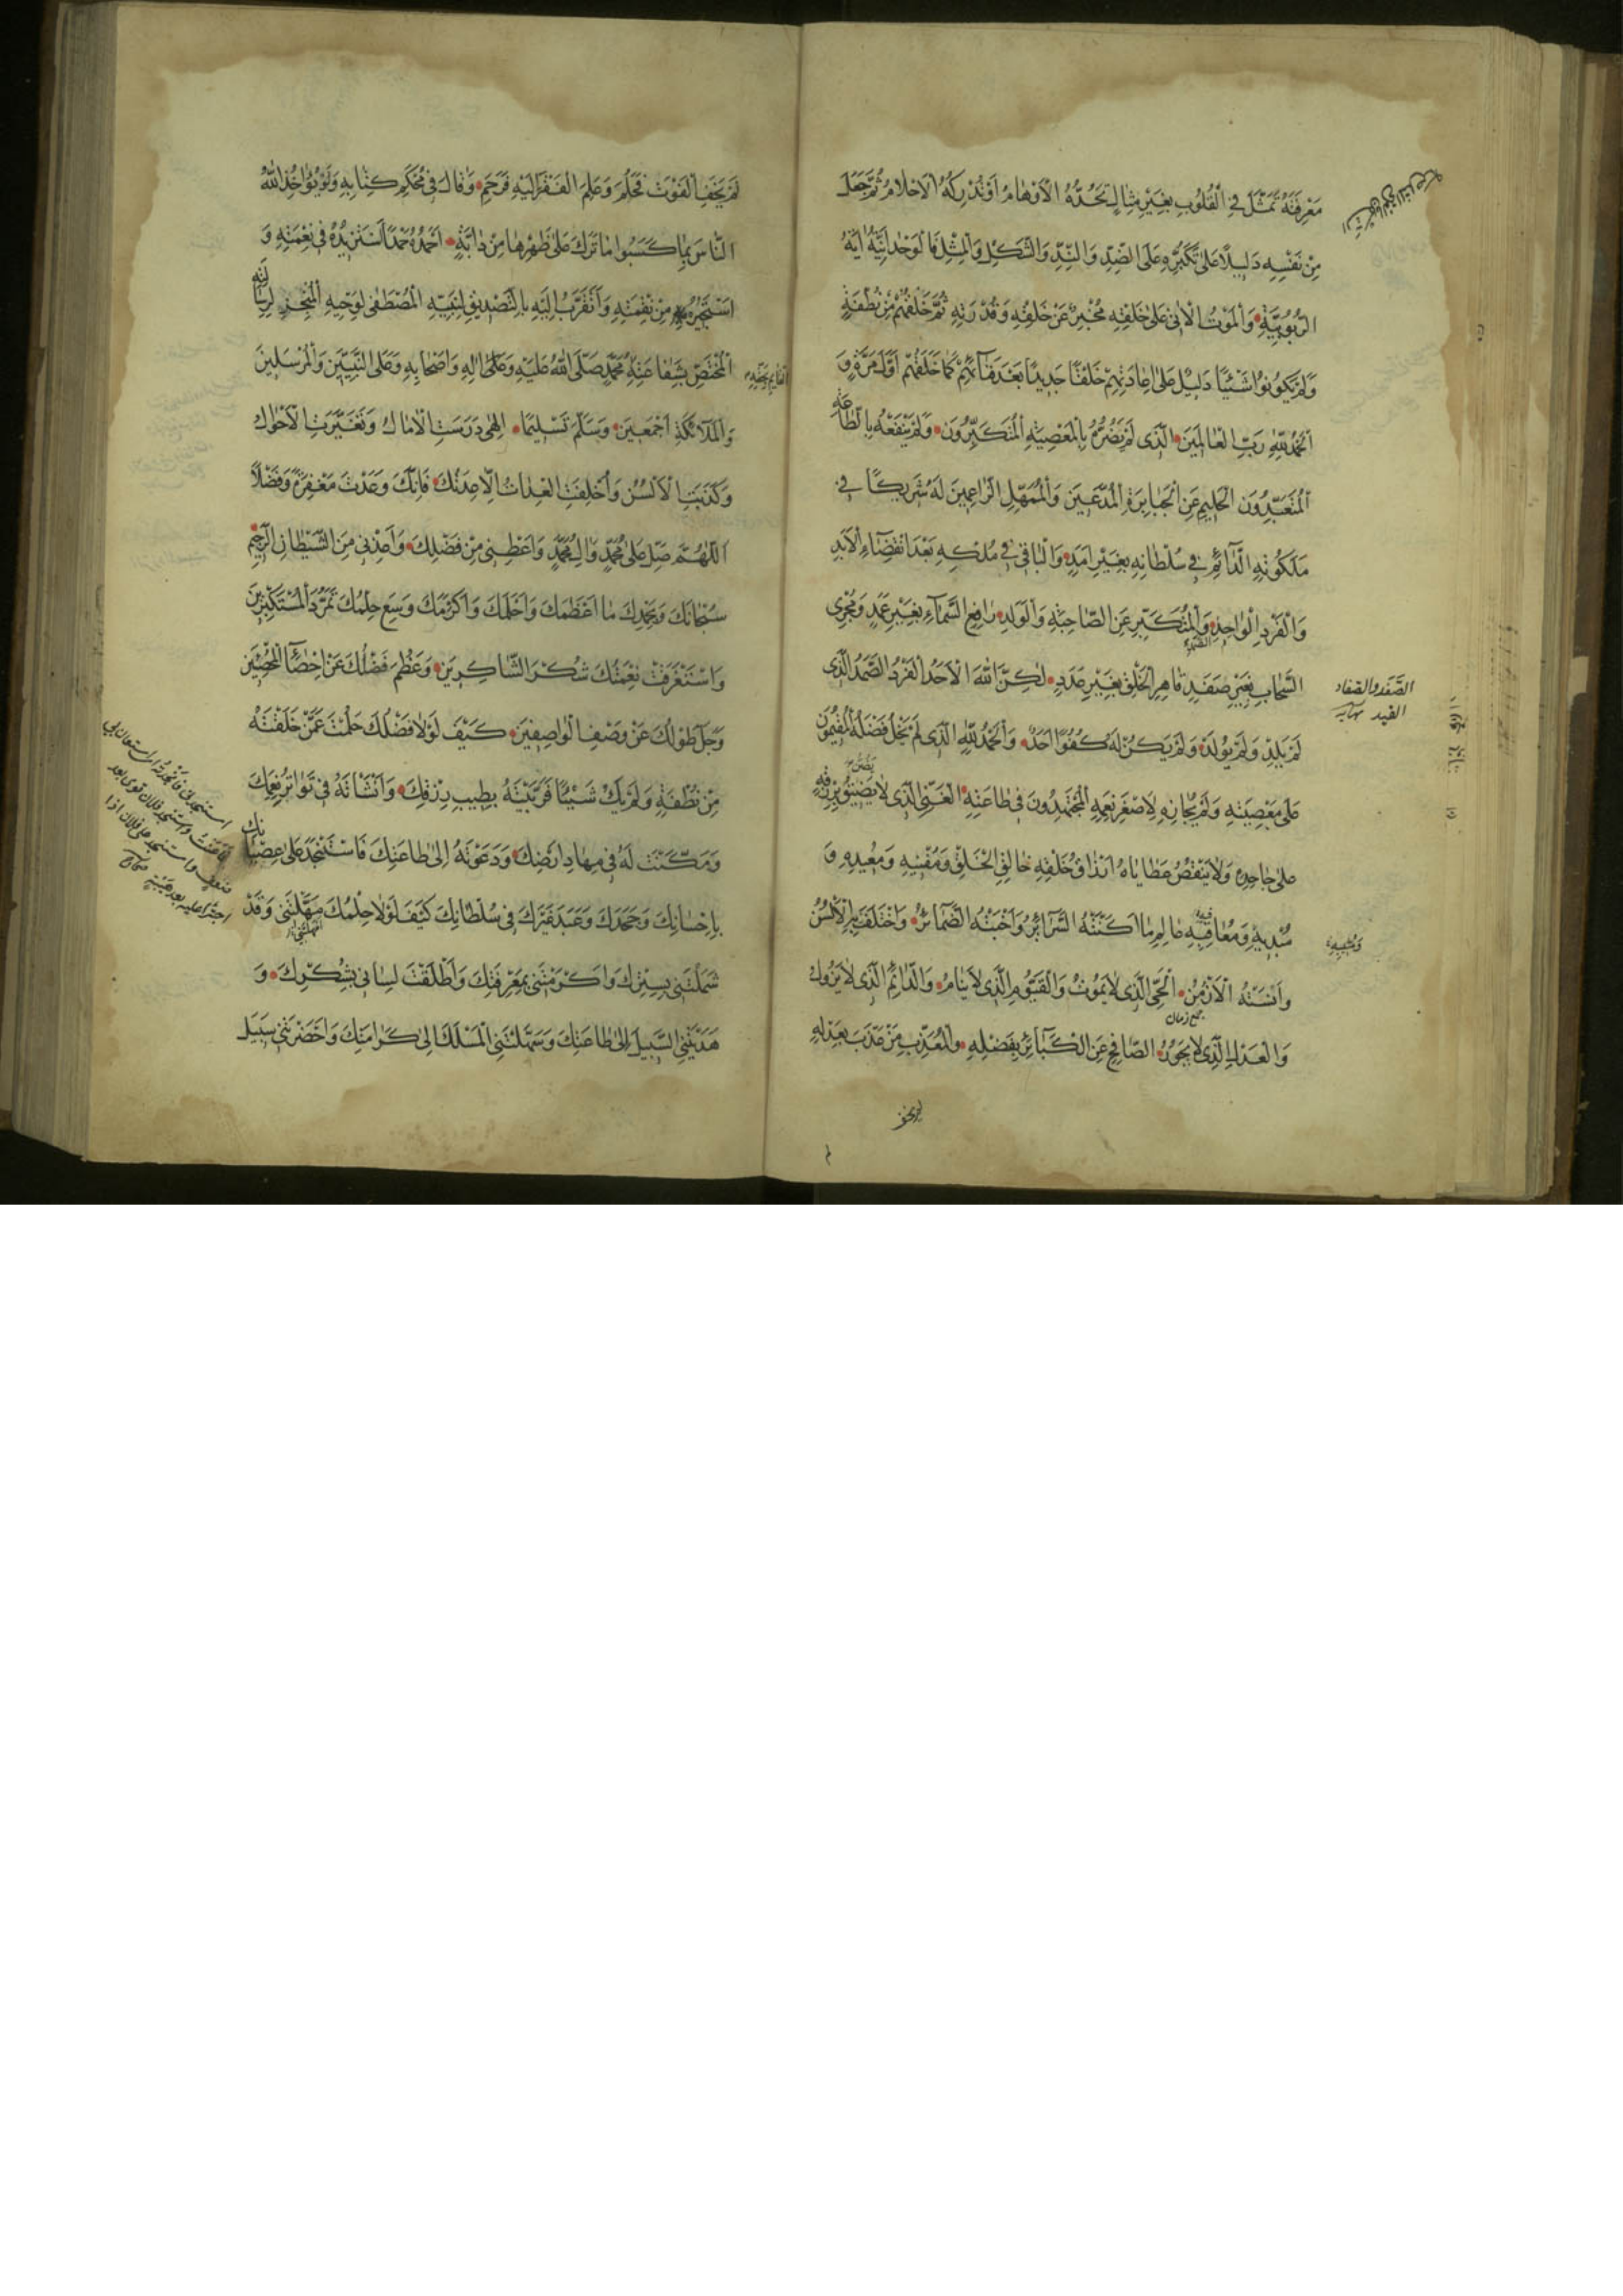 مَعْرِفَتُهُ تَمَثَّلَ فِي الْقُلُوبِ بِغَيْرِ مِثَالٍ تَحُدُّهُ الْأَوْهَامُ أَوْ تُدْرِكُهُ الْأَحْلَامُ ثُمَّ جَعَلَ
مِنْ نَفْسِهِ دَلِيلًا عَلَى تَكَبُّرِهِ عَلَى الضِّدِّ وَالنِّدِّ وَالشَّكْلِ وَالْمِثْلِ فَالْوَحْدَانِيَّةُ آيَةُ
الرُّبُوبِيَّةِ وَالْمَوْتُ الْآتِي عَلَى خَلْقِهِ مُخْبِرٌ عَنْ خَلْقِهِ وَقُدْرَتِهِ ثُمَّ خَلَقَهُمْ مِنْ نُطْفَةٍ
وَلَمْ يَكُونُوا شَيْئًا دَلِيلٌ عَلَى إِعَادَتِهِمْ خَلْقًا جَدِيدًا بَعْدَ فَنَائِهِمْ كَمَا خَلَقَهُمْ أَوَّلَ مَرَّةٍ وَ
الْحَمْدُ لِلَّهِ رَبِّ الْعَالَمِينَ الَّذِي لَمْ يَضُرَّهُ بِالْمَعْصِيَةِ الْمُتَكَبِّرُونَ وَلَمْ يَنْفَعْهُ بِالطَّاعَةِ
الْمُتَعَبِّدُونَ الْحَلِيمِ عَنِ الْجَبَابِرَةِ الْمُدَّعِينَ وَالْمُمَهِّلِ الزَّاعِمِينَ لَهُ شَرِيكًا فِي
مَلَكُوتِهِ الدَّائِمِ فِي سُلْطَانِهِ بِغَيْرِ أَمَدٍ وَالْبَاقِي فِي مُلْكِهِ بَعْدَ انْقِضَاءِ الْأَبَدِ
وَالْفَرْدِ الْوَاحِدِ الصَّمَدِ وَالْمُتَكَبِّرِ عَنِ الصَّاحِبَةِ وَالْوَلَدِ رَافِعِ السَّمَاءِ بِغَيْرِ عَمَدٍ وَمُجْرِي
السَّحَابِ بِغَيْرِ صَفَدٍ قَاهِرِ الْخَلْقِ بِغَيْرِ عَدَدٍ لَكِنَّ اللَّهَ الْأَحَدُ الْفَرْدُ الصَّمَدُ الَّذِي
الصَّفَد والصفاد
القيد نهايه
لَمْ يَلِدْ وَلَمْ يُولَدْ وَلَمْ يَكُنْ لَهُ كُفُوًا أَحَدٌ وَالْحَمْدُ لِلَّهِ الَّذِي لَمْ يَخْلُ فَضْلُهُ الْمُقِيمُونَ
عَلَى مَعْصِيَتِهِ وَلَمْ يُجَازِهِ لِأَصْغَرِ نِعَمِهِ الْمُجْتَهِدُونَ فِي طَاعَتِهِ الْغَنِيِّ الَّذِي لَا يَضِنُّ بِرِزْقِهِ
عَلَى جَاحِدِهِ وَلَا يَنْقُصُ عَطَايَاهُ أَرْزَاقُ خَلْقِهِ خَالِقِ الْخَلْقِ وَمُفْنِيهِ وَمُعِيدِهِ وَ
مُبْدِيهِ وَمُعَاقِبِهِ عَالِمِ مَا أَكَنَّتْهُ السَّرَائِرُ وَأَخْبَتْهُ الضَّمَائِرُ وَاخْتَلَفَتْ بِهِ الْأَلْسُنُ
وَأَنْسَتْهُ الْأَزْمُنُ الْحَيِّ الَّذِي لَا يَمُوتُ وَالْقَيُّومِ الَّذِي لَا يَنَامُ وَالدَّائِمِ الَّذِي لَا يَزُولُ
جمع زمان
وَالْعَدْلِ الَّذِي لَا يَجُورُ الصَّافِحِ عَنِ الْكَبَائِرِ بِفَضْلِهِ وَالْمُعَذِّبِ مَنْ عَذَّبَ بِعَدْلِهِ
لم يخف
لَمْ يَخَفِ الْفَوْتَ فَحَلُمَ وَعَلِمَ الْفَقْرَ إِلَيْهِ فَرَحِمَ وَقَالَ فِي مُحْكَمِ كِتَابِهِ وَلَوْ يُؤَاخِذُ اللَّهُ
النَّاسَ بِمَا كَسَبُوا مَا تَرَكَ عَلَى ظَهْرِهَا مِنْ دَابَّةٍ أَحْمَدُهُ حَمْدًا أَسْتَزِيدُهُ فِي نِعْمَتِهِ وَ
أَسْتَجِيرُ بِهِ مِنْ نِقْمَتِهِ وَأَتَقَرَّبُ إِلَيْهِ بِالتَّصْدِيقِ لِنَبِيِّهِ الْمُصْطَفَى لِوَحْيِهِ الْمُتَخَيَّرِ لِرِسَالَتِهِ
الْمُخْتَصِّ بِشَفَاعَتِهِ مُحَمَّدٍ صَلَّى اللَّهُ عَلَيْهِ وَعَلَى آلِهِ وَأَصْحَابِهِ وَعَلَى النَّبِيِّينَ وَالْمُرْسَلِينَ
الْقَائِمِ بِحَقِّهِ
وَالْمَلَائِكَةِ أَجْمَعِينَ وَسَلَّمَ تَسْلِيمًا إِلَهِي دَرَسَتِ الْآمَالُ وَتَغَيَّرَتِ الْأَحْوَالُ
وَكَذَبَتِ الْأَلْسُنُ وَأُخْلِفَتِ الْعِدَاتُ إِلَّا عِدَتُكَ فَإِنَّكَ وَعَدْتَ مَغْفِرَةً وَفَضْلًا
اللَّهُمَّ صَلِّ عَلَى مُحَمَّدٍ وَآلِ مُحَمَّدٍ وَأَعْطِنِي مِنْ فَضْلِكَ وَأَعِذْنِي مِنَ الشَّيْطَانِ الرَّجِيمِ
سُبْحَانَكَ وَبِحَمْدِكَ مَا أَعْظَمَكَ وَأَحْلَمَكَ وَأَكْرَمَكَ وَسِعَ حِلْمُكَ تَمَرُّدَ الْمُسْتَكْبِرِينَ
وَاسْتَغْرَقَتْ نِعْمَتُكَ شُكْرَ الشَّاكِرِينَ وَعَظُمَ فَضْلُكَ عَنْ إِحْصَاءِ الْمُحْصِينَ
وَجَلَّ طَوْلُكَ عَنْ وَصْفِ الْوَاصِفِينَ كَيْفَ لَوْلَا فَضْلُكَ حَلُمْتَ عَمَّنْ خَلَقْتَهُ
مِنْ نُطْفَةٍ وَلَمْ يَكُ شَيْئًا فَرَبَّيْتَهُ بِطِيبِ رِزْقِكَ وَأَنْشَأْتَهُ فِي تَوَاتُرِ نِعَمِكَ
وَمَكَّنْتَ لَهُ فِي مِهَادِ أَرْضِكَ وَدَعَوْتَهُ إِلَى طَاعَتِكَ فَاسْتَنْجَدَ عَلَى عِصْيَانِكَ
بِإِحْسَانِكَ وَجَحَدَكَ وَعَبَدَ غَيْرَكَ فِي سُلْطَانِكَ كَيْفَ لَوْلَا حِلْمُكَ مَهَّلْتَنِي وَقَدْ
أمهلتني
شَمَلْتَنِي بِسِتْرِكَ وَأَكْرَمْتَنِي بِمَعْرِفَتِكَ وَأَطْلَقْتَ لِسَانِي بِشُكْرِكَ وَ
هَدَيْتَنِي السَّبِيلَ إِلَى طَاعَتِكَ وَسَهَّلْتَنِي الْمَسْلَكَ إِلَى كَرَامَتِكَ وَأَحْضَرْتَنِي سَبِيلَ
استنجدني فأنجدته اى استعان بي
فأعنته واستنجد فلان قوى بعد
ضعف واستنجد على فلان اذا
اجترأ عليه بعد هيبته صحاح